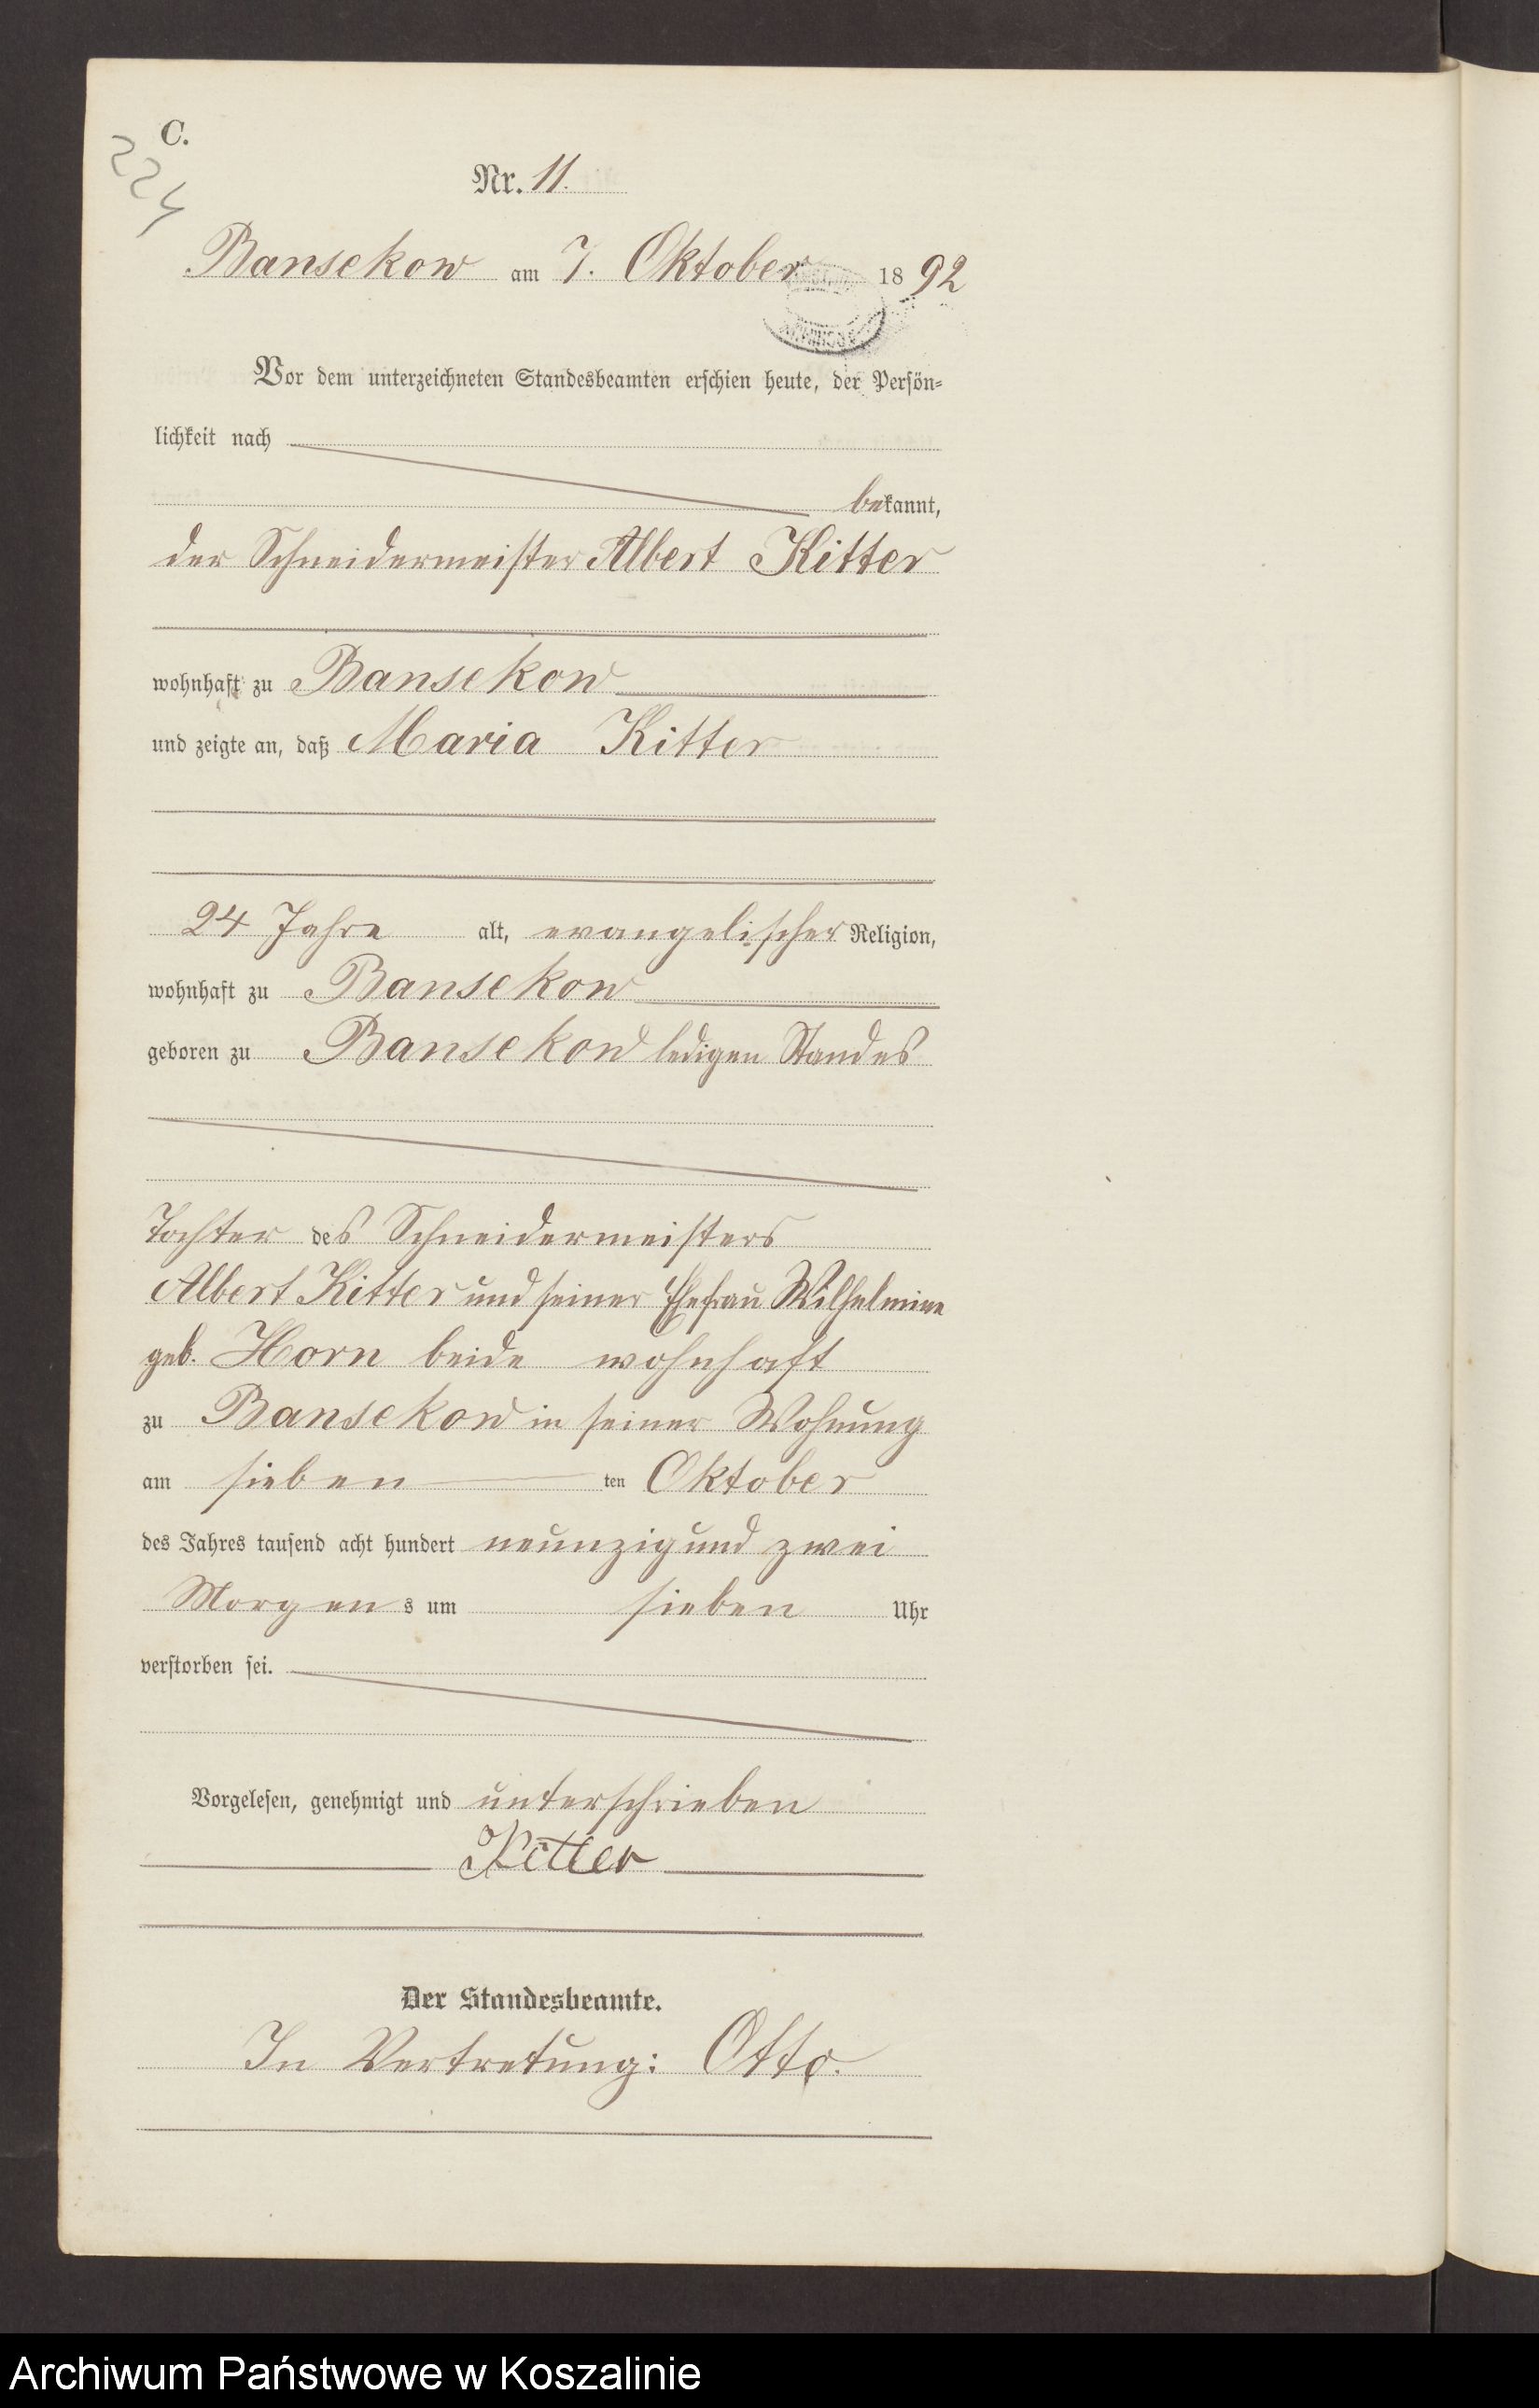 C.
224
Nr. 11.
Bansekow am 7. Oktober 1892
Vor dem unterzeichneten Standesbeamten erschien heute, der Persön-
lichkeit nach
bekannt,
der Schneidermeister Albert Kitter
wohnhaft zu Bansekow
und zeigte an, daß Maria Kitter
24 Jahre alt, evangelischer Religion,
wohnhaft zu Bansekow
geboren zu Bansekow ledigen Standes
Tochter des Schneidermeisters
Albert Kitter und seiner Ehefrau Wilhelmine
geb. Horn beide wohnhaft
zu Bansekow in seiner Wohnung
am sieben ten Oktober
des Jahres tausend acht hundert neunzig und zwei
Morgens um sieben Uhr
verstorben sei.
Vorgelesen, genehmigt und unterschrieben
Kitter
Der Standesbeamte.
In Vertretung: Otto.
Archiwum Państwowe w Koszalinie